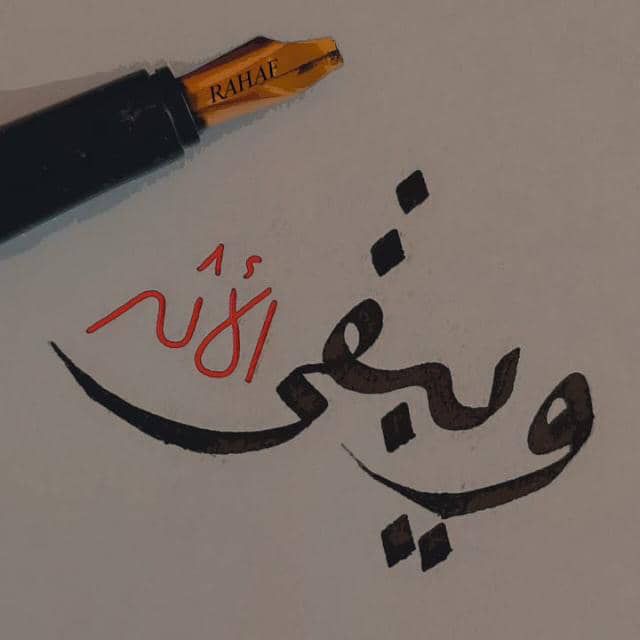 RAHAF
ويبقى
الأثر